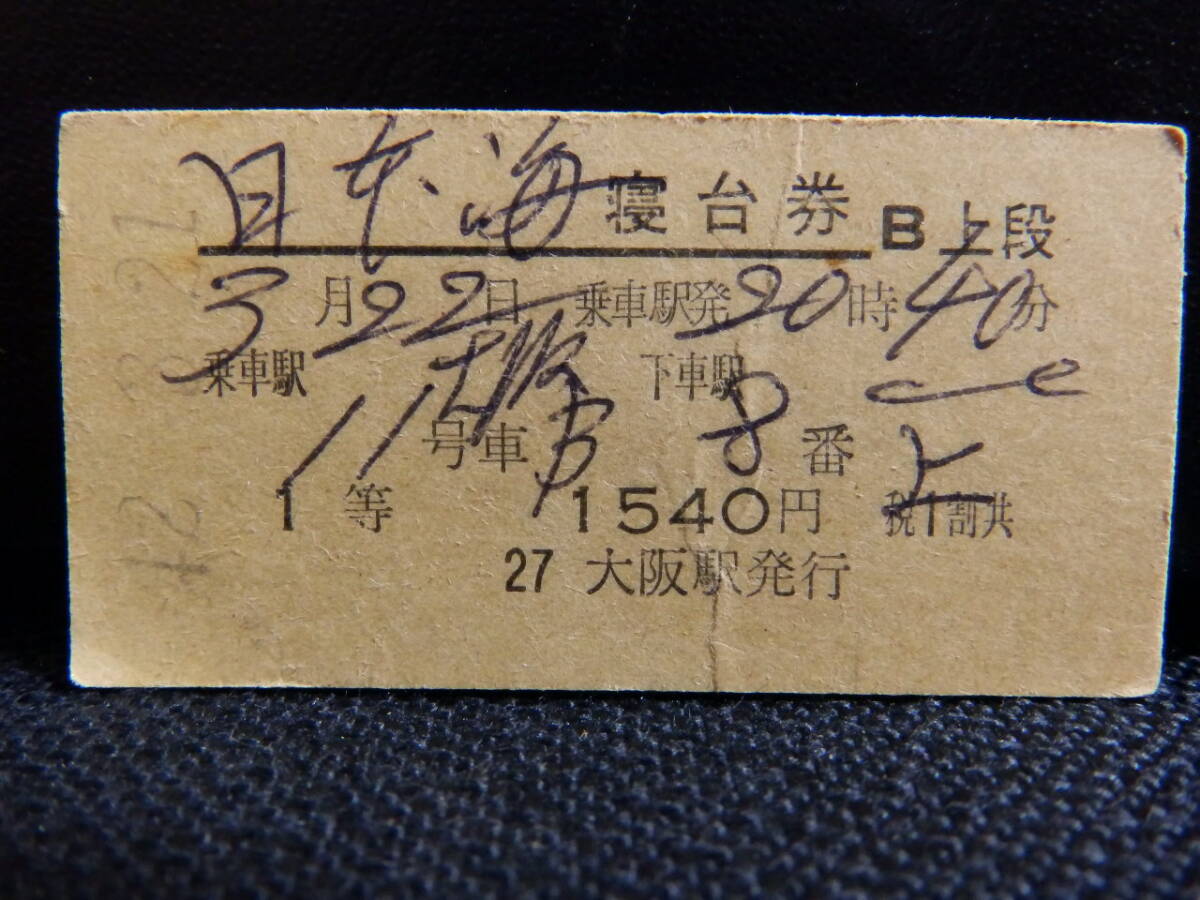 日本海 寝台券 B上段
3月22日 乗車駅発 20時40分
乗車駅 大阪 下車駅
11号車 8番 上
1等 1540円 税1割共
27 大阪駅発行